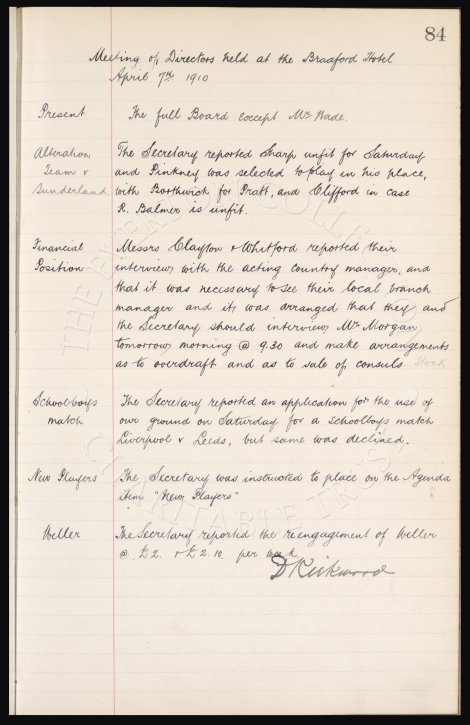 84
Meeting of Directors held at the Bradford Hotel
April 7th 1910
Present The full Board except Mr Wade.
Alteration The Secretary reported Sharp unfit for Saturday
Team v and Pinkney was selected to play in his place,
Sunderland with Borthwick for Pratt, and Clifford in case
R. Balmer is unfit.
Financial Messrs Clayton & Whitford reported their
Position interview with the acting country manager, and
that it was necessary to see their local branch
manager and it was arranged that they and
the Secretary should interview Mr Morgan
tomorrow morning @ 9.30 and make arrangements
as to overdraft and as to sale of consuls Stock
Schoolboys The Secretary reported an application for the use of
match our ground on Saturday for a schoolboys match
Liverpool v Leeds, but same was declined.
New Players The Secretary was instructed to place on the Agenda
item "New Players"
Weller The Secretary reported the reengagement of Weller
@ £2. & £2.10 per week
D Kirkwood
THE EVERTON COLLECTION
CHARITABLE TRUST